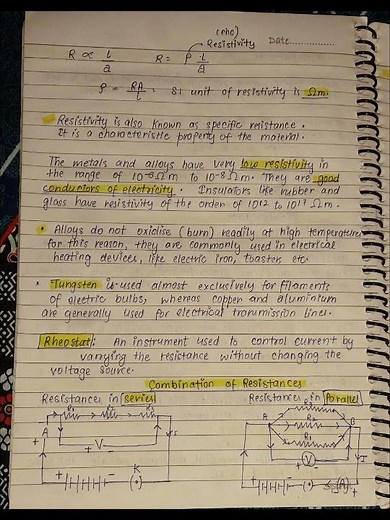 (rho)
Resistivity
Date
R ∝ l/a R = ρ·l/a
ρ = RA/l, SI unit of resistivity is Ωm.
Resistivity is also known as specific resistance.
It is a characteristic property of the material.
The metals and alloys have very low resistivity in
the range of 10⁻⁶Ωm to 10⁻⁸Ωm. They are good
conductors of electricity. Insulators like rubber and
glass have resistivity of the order of 10¹² to 10¹⁷Ωm.
Alloys do not oxidise (burn) readily at high temperature
for this reason, they are commonly used in electrical
heating devices, like electric iron, toasters etc.
Tungsten is used almost exclusively for filaments
of electric bulbs, whereas copper and aluminium
are generally used for electrical transmission lines.
Rheostat: An instrument used to control current by
varying the resistance without changing the
voltage source.
Combination of Resistances
Resistances in series Resistances in Parallel
R1 R2 R3
A
+ V -
I
K
+ - (·)
R1
A R2 B
R3
V
I
+ - (·) (A) +